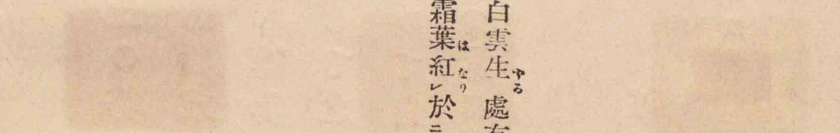 白雲生處
霜葉紅於